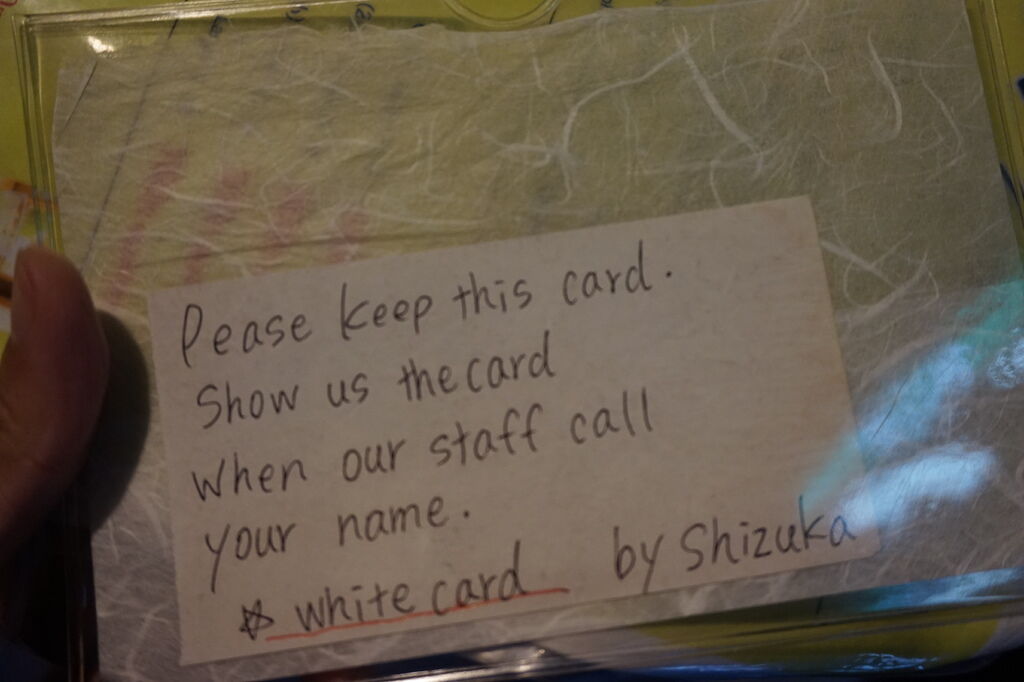 Pease keep this card.
Show us the card
When our staff call
your name.
☆ white card by Shizuka